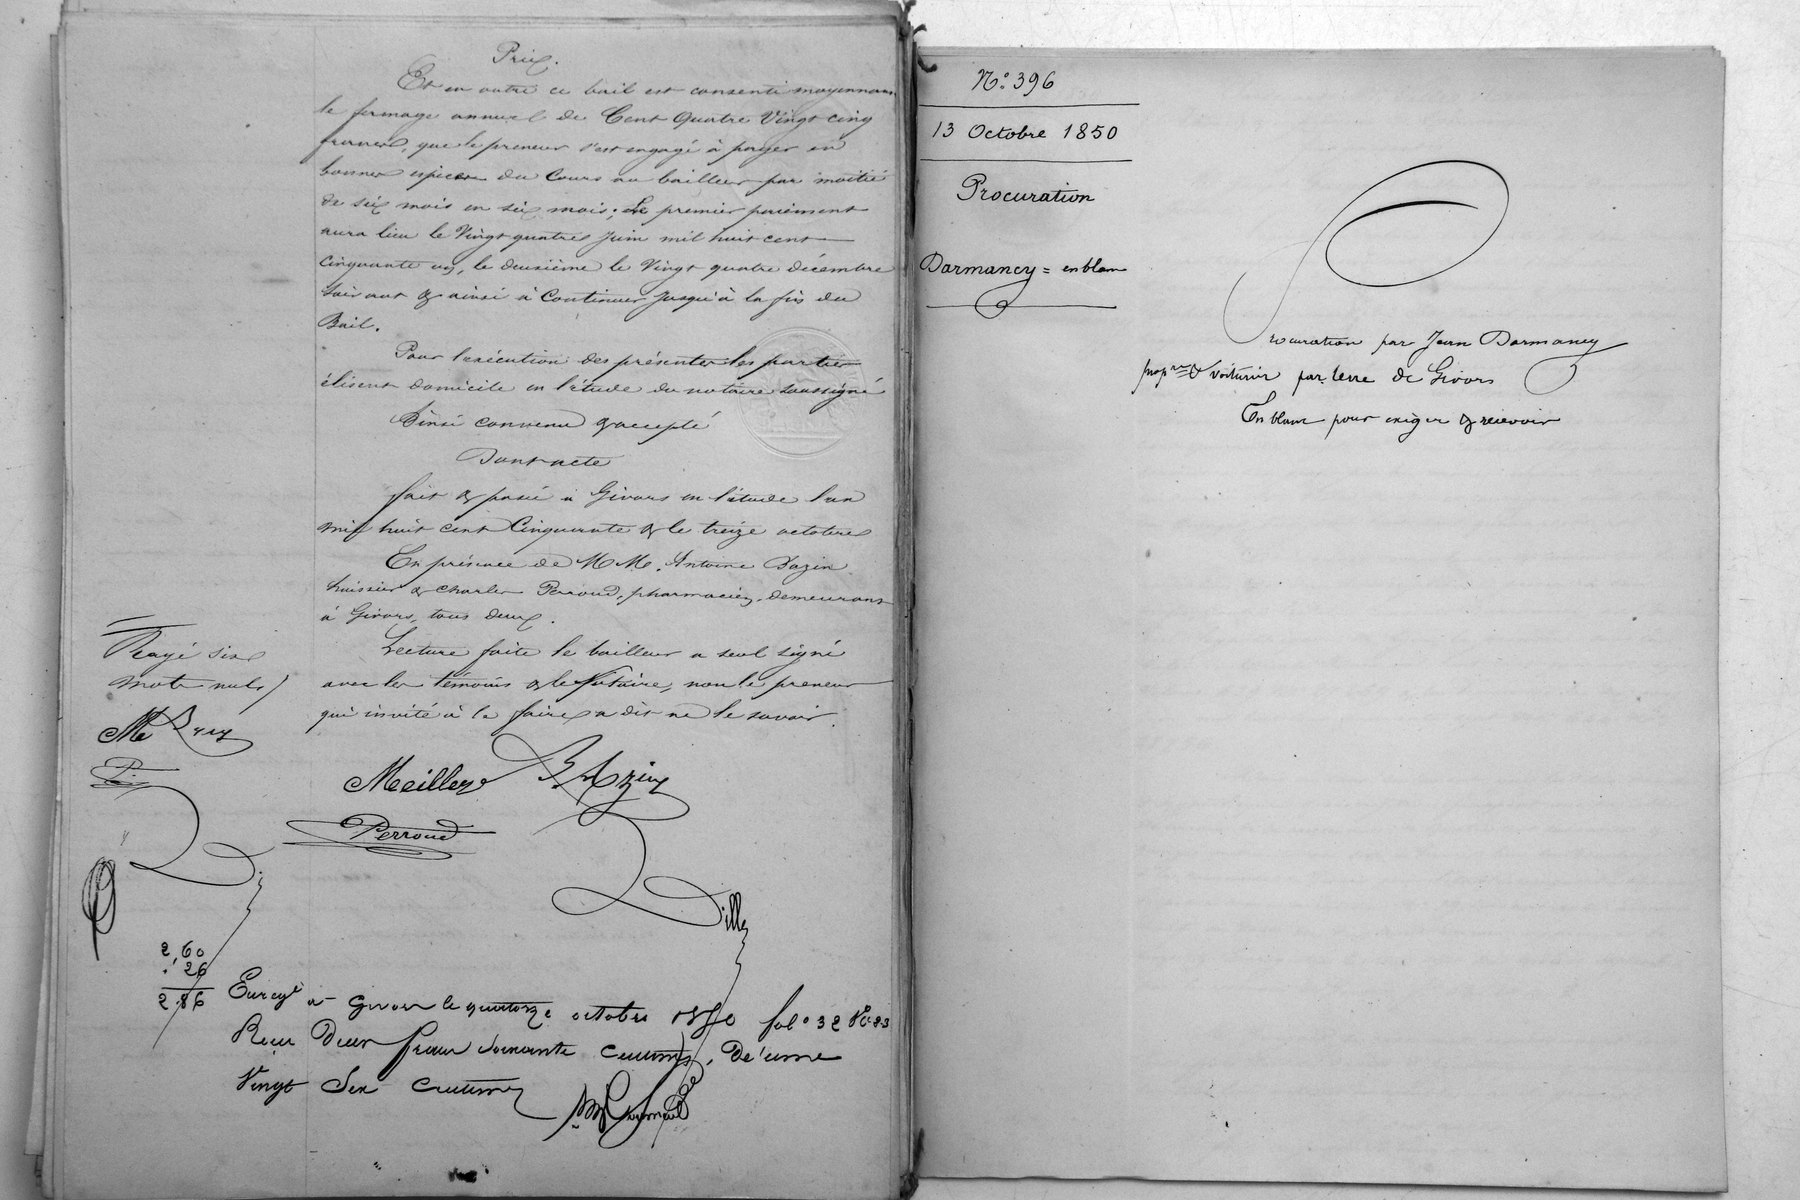 Prix.
Et en outre ce bail est consenti moyennant
le fermage annuel de Cent Quatre Vingt cinq
francs, que le preneur s'est engagé à payer en
bonnes espèces du Cours au bailleur par moitié
de six mois en six mois; Le premier paiement
aura lieu le Vingt quatre Juin mil huit cent
Cinquante un, le deuxième le Vingt quatre décembre
suivant & ainsi à Continuer jusqu'à la fin du
Bail.
Pour l'exécution des présentes les parties
élisent domicile en l'étude du notaire soussigné
Ainsi convenu & accepté
Dont acte
fait & passé à Givors en l'étude l'an
mil huit cent Cinquante & le treize octobre
En présence de MM. Antoine Bazin
huissier & Charles Perroud, pharmacien, demeurant
à Givors, tous deux.
Lecture faite le bailleur a seul signé
avec les témoins & le Notaire, non le preneur
qui invité à le faire a dit ne le savoir.
Rayé six
mots nuls
Meiller Bazin
Perroud
Dille
2,60
26
2.86
Enregé à Givors le quatorze octobre 1850 folo 32
Reçu Deux francs soixante centimes, Décime
Vingt Six centimes
No. 396
13 Octobre 1850
Procuration
Darmancy = en blanc
Procuration par Jean Darmancy
propre & voiturier par terre de Givors
En blanc pour exiger & recevoir